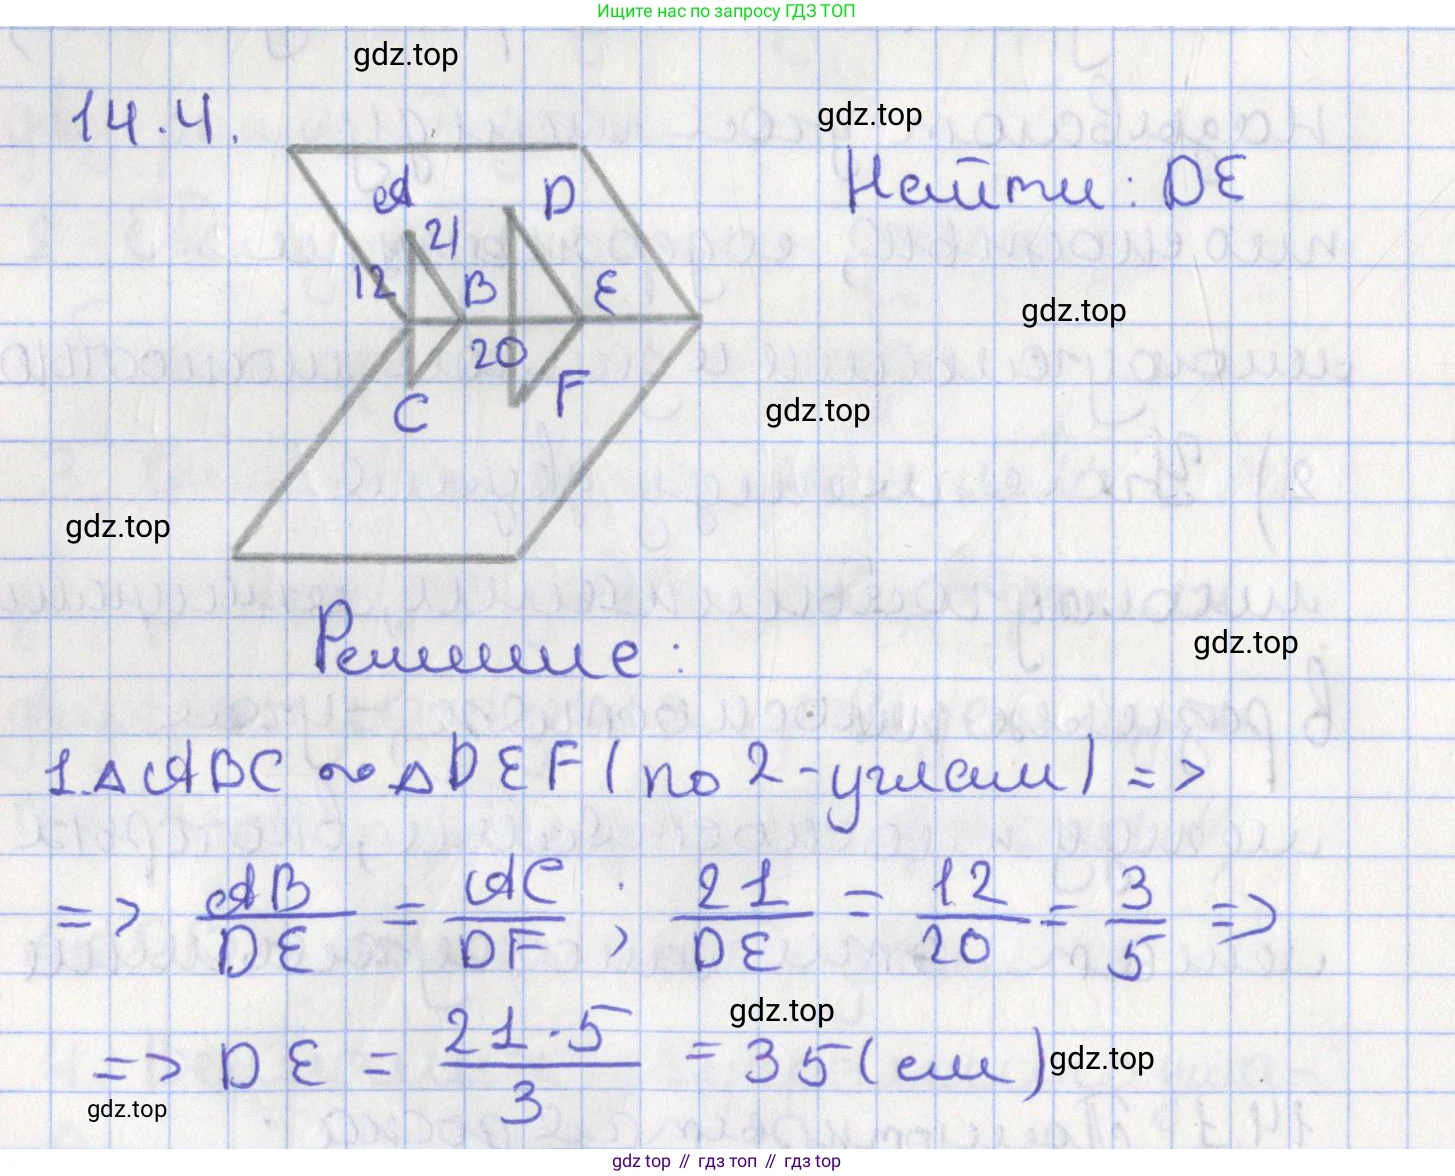 Ищите нас по запросу ГДЗ ТОП
gdz.top
14.4.
gdz.top
Найти: DE
A
D
21
12
B
E
gdz.top
20
F
C
gdz.top
gdz.top
Решение:
gdz.top
1. △ABC ∾ △DEF (по 2-углам) =>
=> AB/DE = AC/DF; 21/DE = 12/20 = 3/5 =>
gdz.top
=> DE = 21·5/3 = 35 (см)
gdz.top
gdz.top
gdz top // гдз топ // гдз top